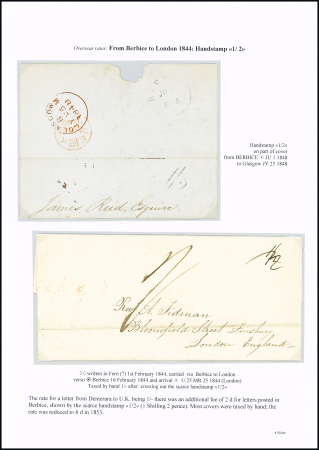 Overseas rates: From Berbice to London 1844: Handstamp «1/ 2»
GLASGOW
Handstamp «1/2»
on part of cover
from BERBICE
to Glasgow JY 25 1848
James Reid, Esquire
Rev A. Tidman
Bloomfield Street Finsbury
London England
written in Fern (?) 1st February 1844, carried via Berbice to London
verso Berbice 16 February 1844 and arrival U 25 MR 25 1844 (London)
Taxed by hand 1/- after crossing out the scarce handstamp «1/2»
The rate for a letter from Demerara to U.K. being 1/- there was an additional fee of 2 d for letters posted in
Berbice, shown by the scarce handstamp «1/2» (1 Shilling 2 pence). Most covers were taxed by hand; the
rate was reduced to 6 d in 1853.